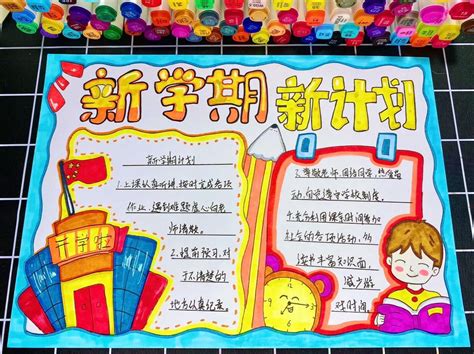 新学期 新计划
新学期计划
1.上课认真听讲,按时完成各项
作业,遇到难题虚心向老
师请教。
2.提前预习,对
于不清楚的
地方认真纪录。
开学啦
尊敬老师,团结同学,热爱劳
动,自觉遵守学校制度。
4.充分利用课余时间参加
社会的各项活动,
丰富知识面,
减少游
戏时间。